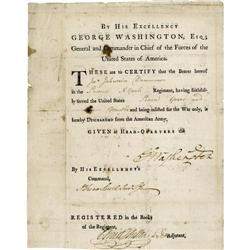 BY HIS EXCELLENCY
GEORGE WASHINGTON, ESQ;
General and Commander in Chief of the Forces of the
United States of America.
THESE are to CERTIFY that the Bearer hereof
in the Regiment, having faithfully
served the United States
and being inlisted for the War only, is
hereby DISCHARGED from the American Army.
GIVEN at HEAD-QUARTERS the
G Washington
BY HIS EXCELLENCY'S
Command,
REGISTERED in the Books
of the Regiment,
Adjutant,